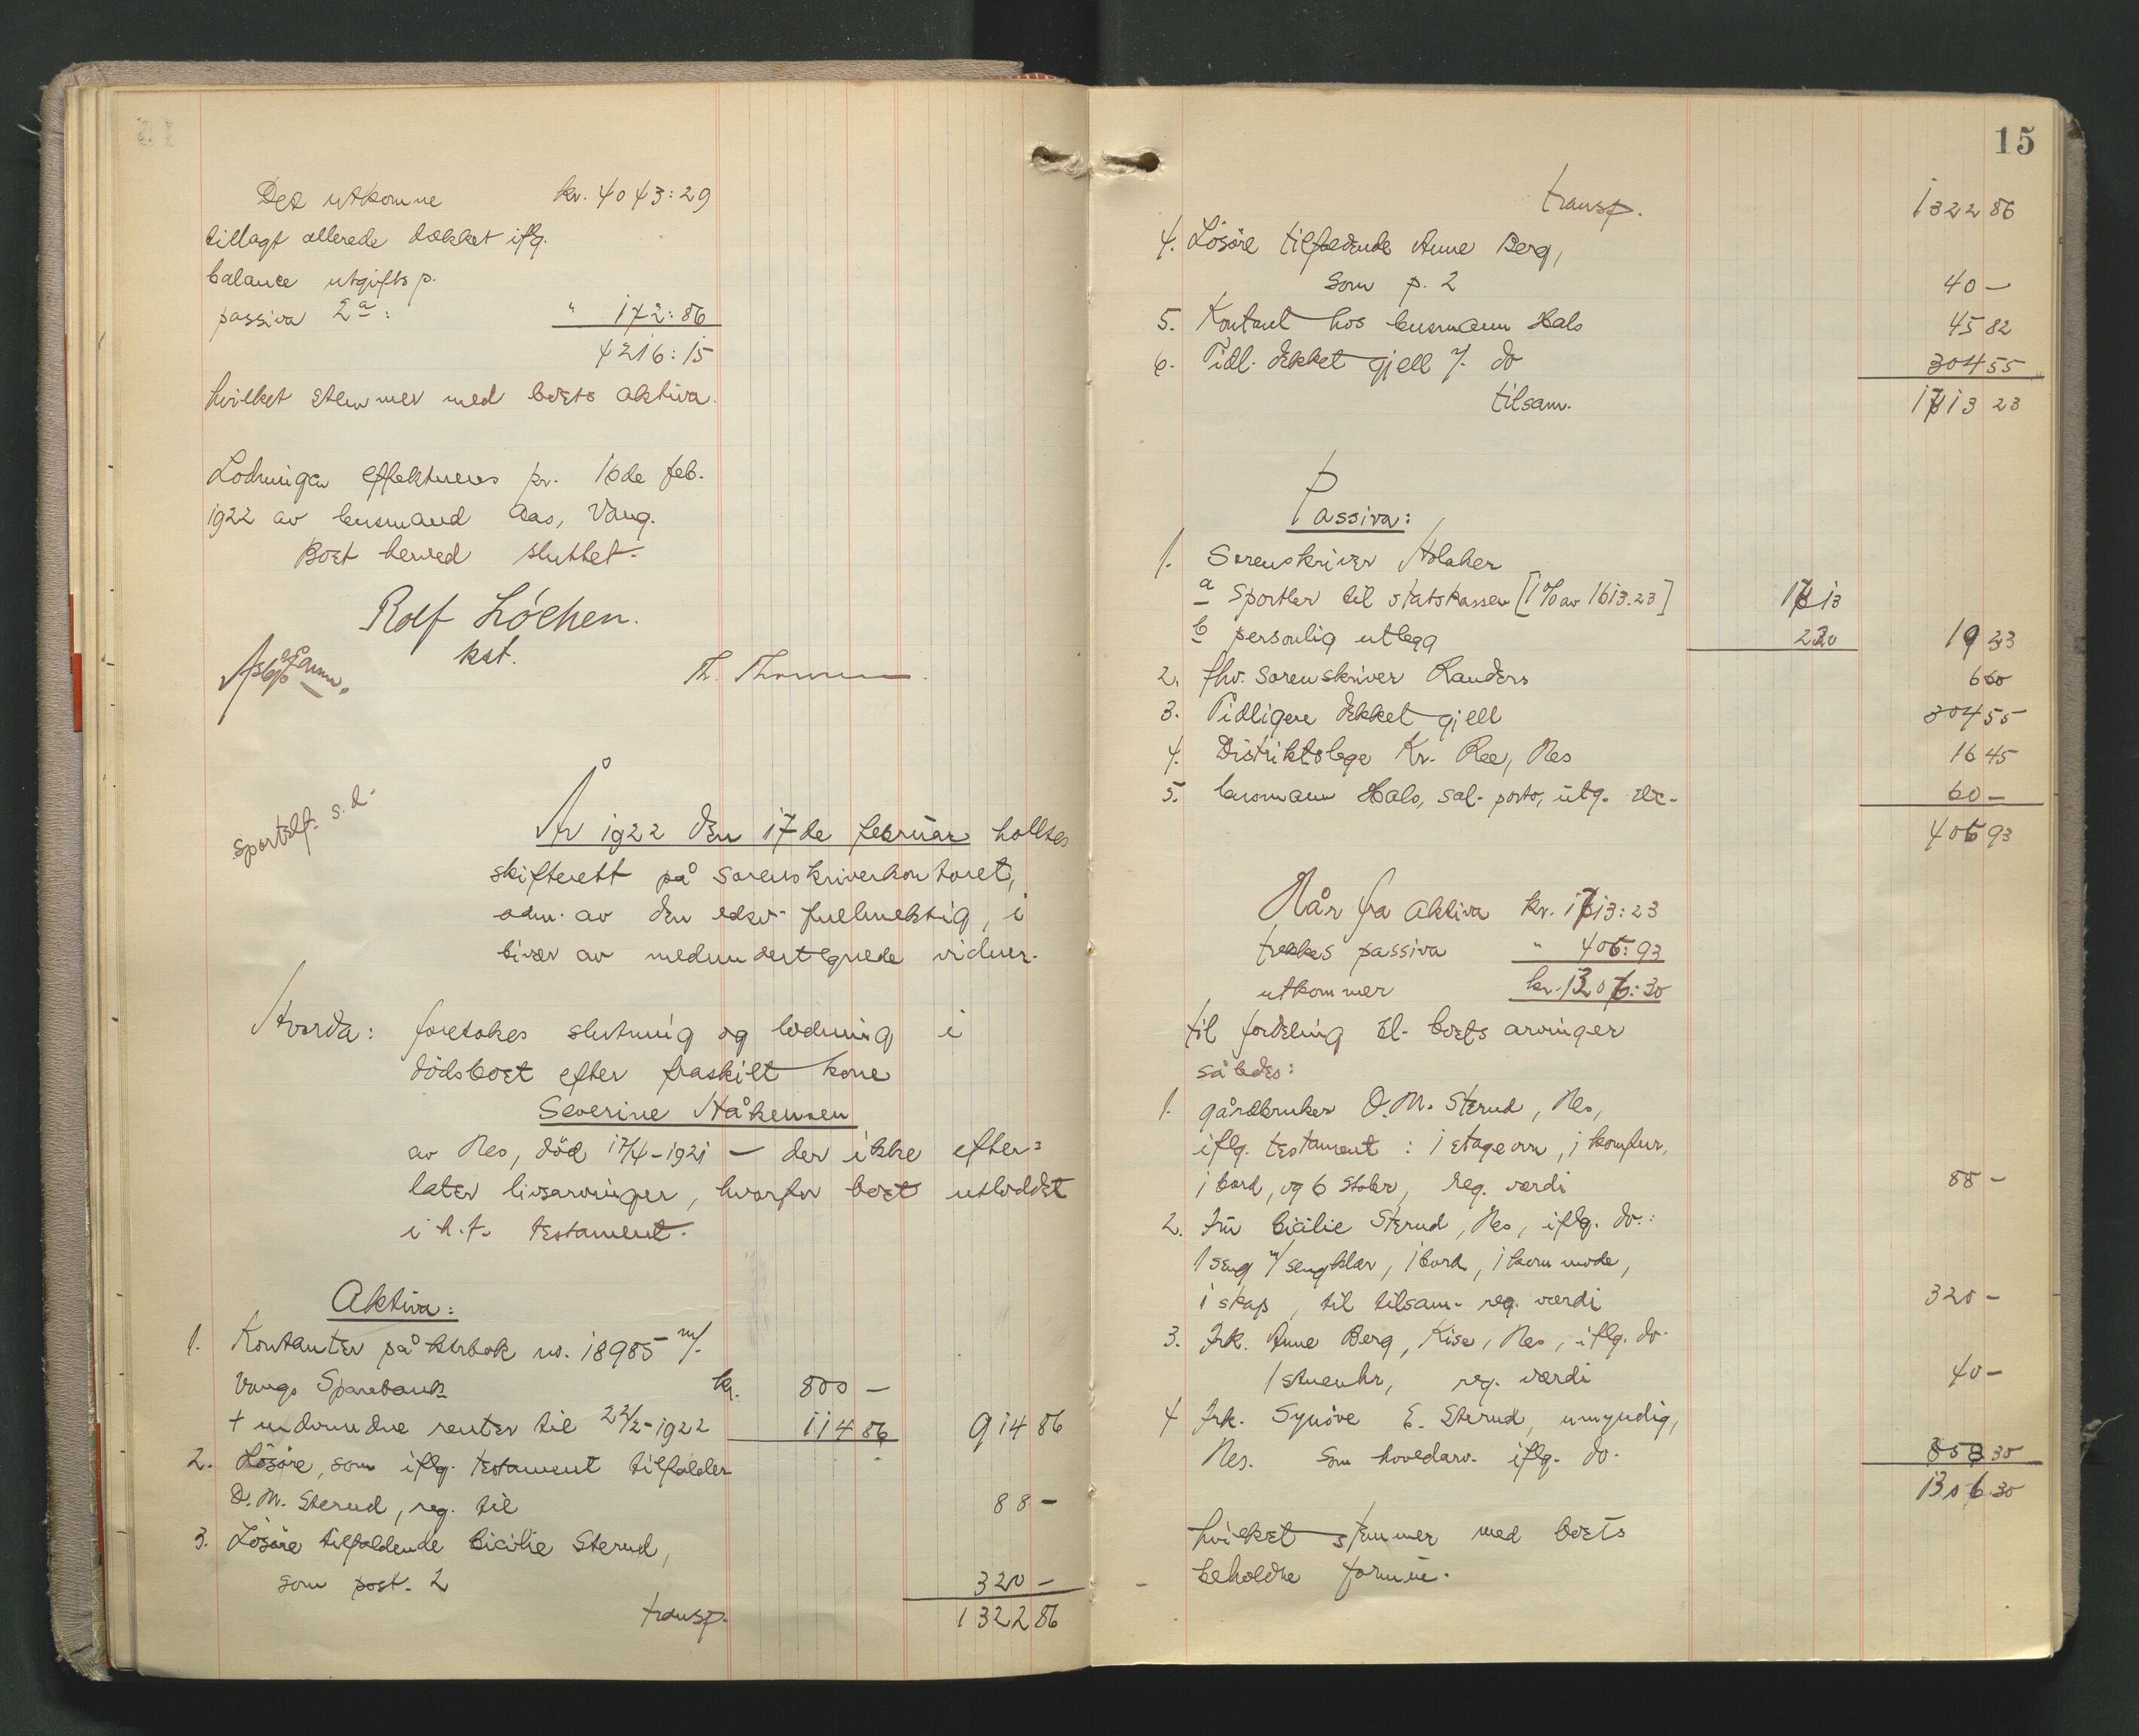 Det utkomne kr. 4043:29
tillagt allerede dækket iflg.
balance utgifts p.
passiva 2a: " 172:86
4216:15
hvilket stemmer med boets aktiva.
Lodningen effektueres pr. 16de feb.
1922 av lensmand Aas, Vang.
Boet herved sluttet.
Rolf Löchen.
kst.
Th.
Sportelf. s. d.
År 1922 den 17de februar holltes
skifterett på sorenskriverkontoret,
adm. av den edsv. fullmektig, i
biver av medundertegnede vidner.
Hvorda: foretokes slutning og lodning i
dödsboet efter fraskilt kone
Severine Håkensen
av Nes, död 17/4-1921 - der ikke efter=
later livsarvinger, hvorfor boet utloddet
i h. t. testament.
Aktiva:
1. Kontanter på kbok no. 18985 m/
Vangs Sparebank kr. 800 -
+ indvundne renter til 22/2-1922 114 86 914 86
2. Lösöre, som iflg. testament tilfalder
O. M. Sterud, reg. til 88 -
3. Lösöre tilfaldende Cicilie Sterud,
som post. 2 320 -
transp. 1322 86
15
transp. 1322 86
4. Lösöre tilfaldende Anne Berg,
som p. 2 40 -
5. Kontant hos lensmann Hals 45 82
6. Tidl. dekket gjell f. do 304 55
tilsam. 1713 23
Passiva:
1. Sorenskriver
a Sportler til statskassen [1% av 1613.23] 17 13
b personlig utlegg 2 20 19 33
2. fhv. sorenskriver Randers 6 60
3. Tidligere dekket gjell 304 55
4. Distriktslege Kr. Ree, Nes 16 45
5. lensmann Hals, sal. porto, utg. etc. 60 -
406 93
Når fra aktiva kr. 1713:23
trekkes passiva " 406:93
utkommer kr. 1306:30
til fordeling bl. boets arvinger
således:
1. gårdbruker O. M. Sterud, Nes,
iflg. testament: 1 etageovn, 1 komfur,
1 bord, og 6 stoler, reg. værdi 88 -
2. Fru Cicilie Sterud, Nes, iflg. do.:
1 seng m/ sengklær, 1 bord, 1 kommode,
1 skap, til tilsam. reg. værdi 320 -
3. Frk. Anne Berg, Kise, Nes, iflg. do.
1 stueuhr, reg. værdi 40 -
4 Frk. Synöve E. Sterud, umyndig,
Nes. som hovedarv. iflg. do. 858 30
1306.30
hvilket stemmer med boets
beholdne formue.